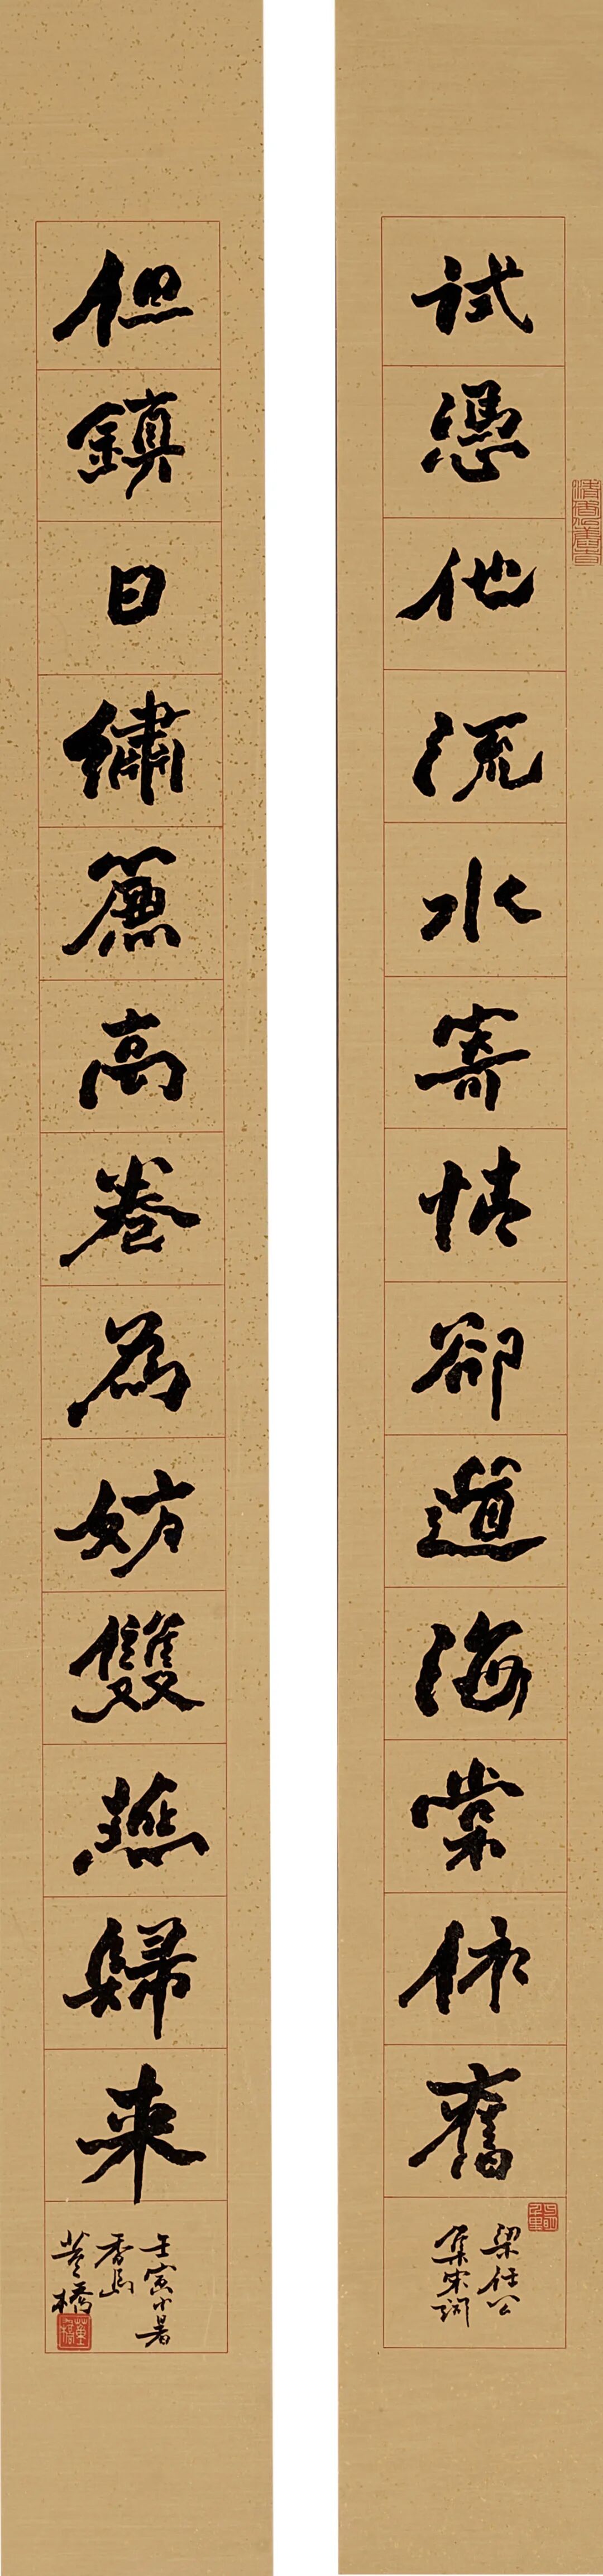 試憑他流水寄情卻道海棠依舊
梁任公
集宋詞
但鎮日繡簾高卷為妨雙燕歸來
壬寅小暑
香島
董橋
董橋